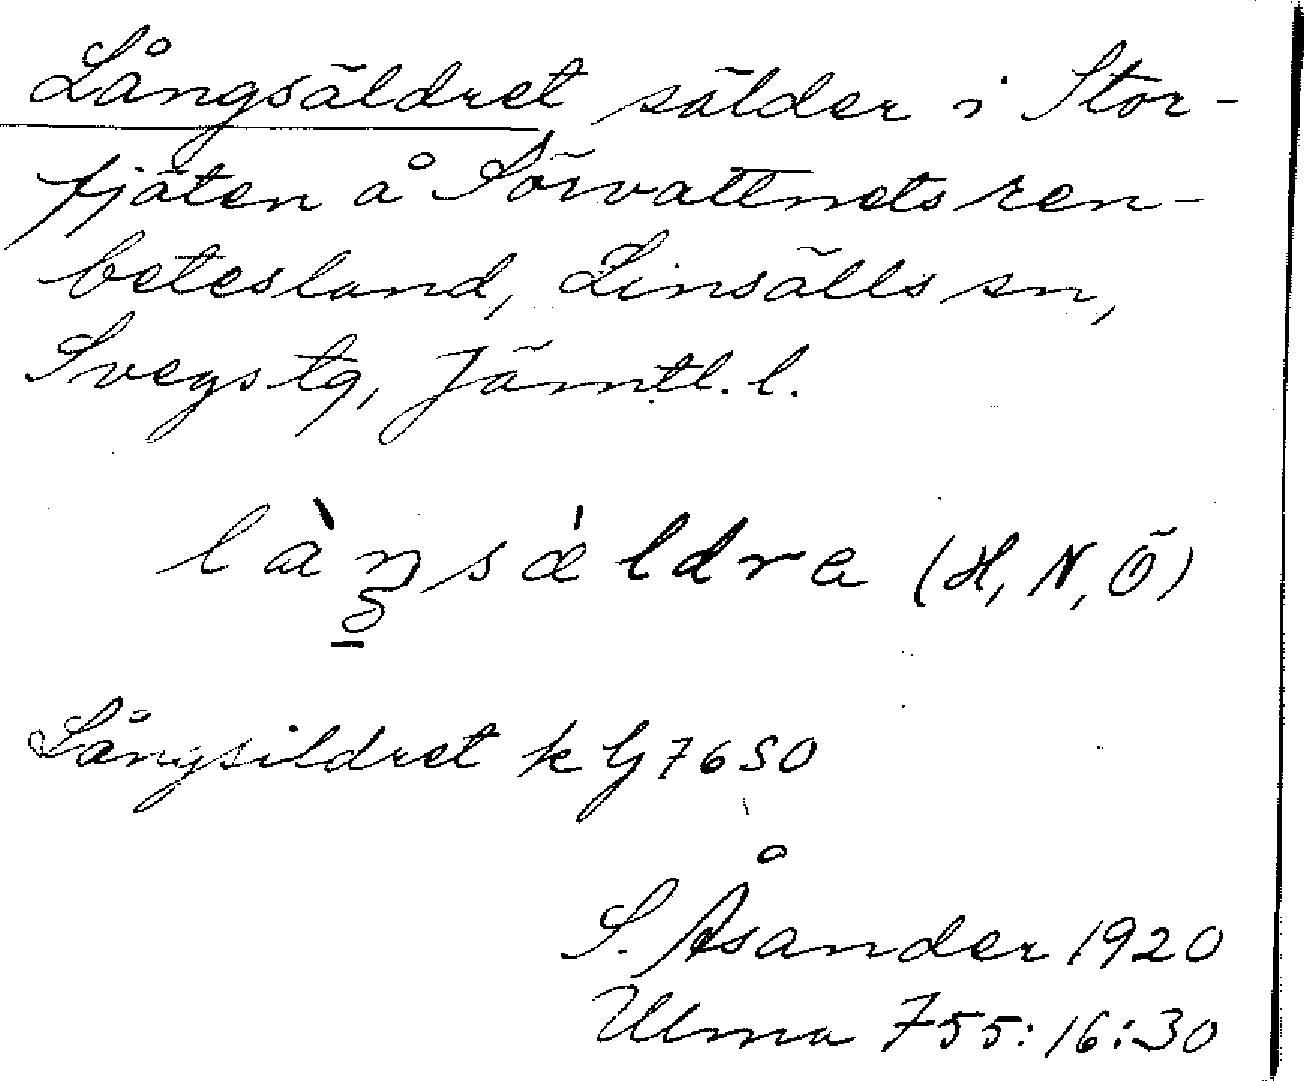 Långsäldret sälder i Stor-
fjäten å Sörvattnets ren-
betesland, Linsälls sn,
Svegs tg, Jämtl. l.
(H, N, Ö)
Långsildret k G 7650
S. Åsander 1920
Ulma 755:16:30